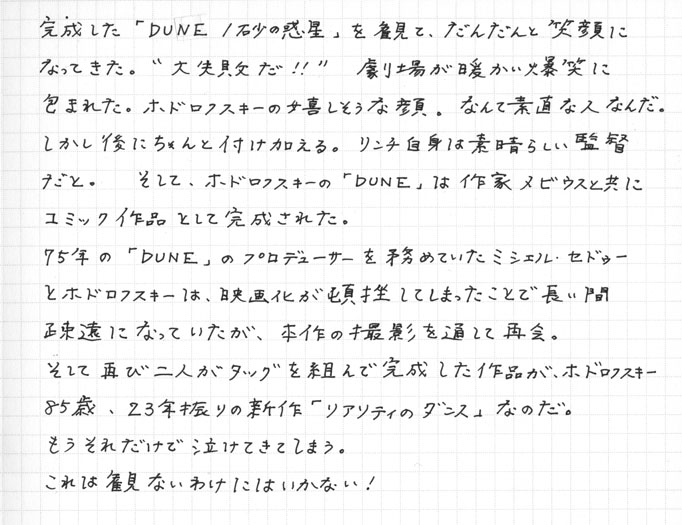 完成した「DUNE/砂の惑星」を観て、だんだんと笑顔に
なってきた。"大失敗だ!!" 劇場が暖かい爆笑に
包まれた。ホドロフスキーの嬉しそうな顔。なんて素直な人なんだ。
しかし後にちゃんと付け加える。リンチ自身は素晴らしい監督
だと。 そして、ホドロフスキーの「DUNE」は作家メビウスと共に
コミック作品として完成された。
75年の「DUNE」のプロデューサーを務めていたミシェル・セドゥー
とホドロフスキーは、映画化が頓挫してしまったことで長い間
疎遠になっていたが、本作の撮影を通して再会。
そして再び二人がタッグを組んで完成した作品が、ホドロフスキー
85歳、23年振りの新作「リアリティのダンス」なのだ。
もうそれだけで泣けてきてしまう。
これは観ないわけにはいかない!